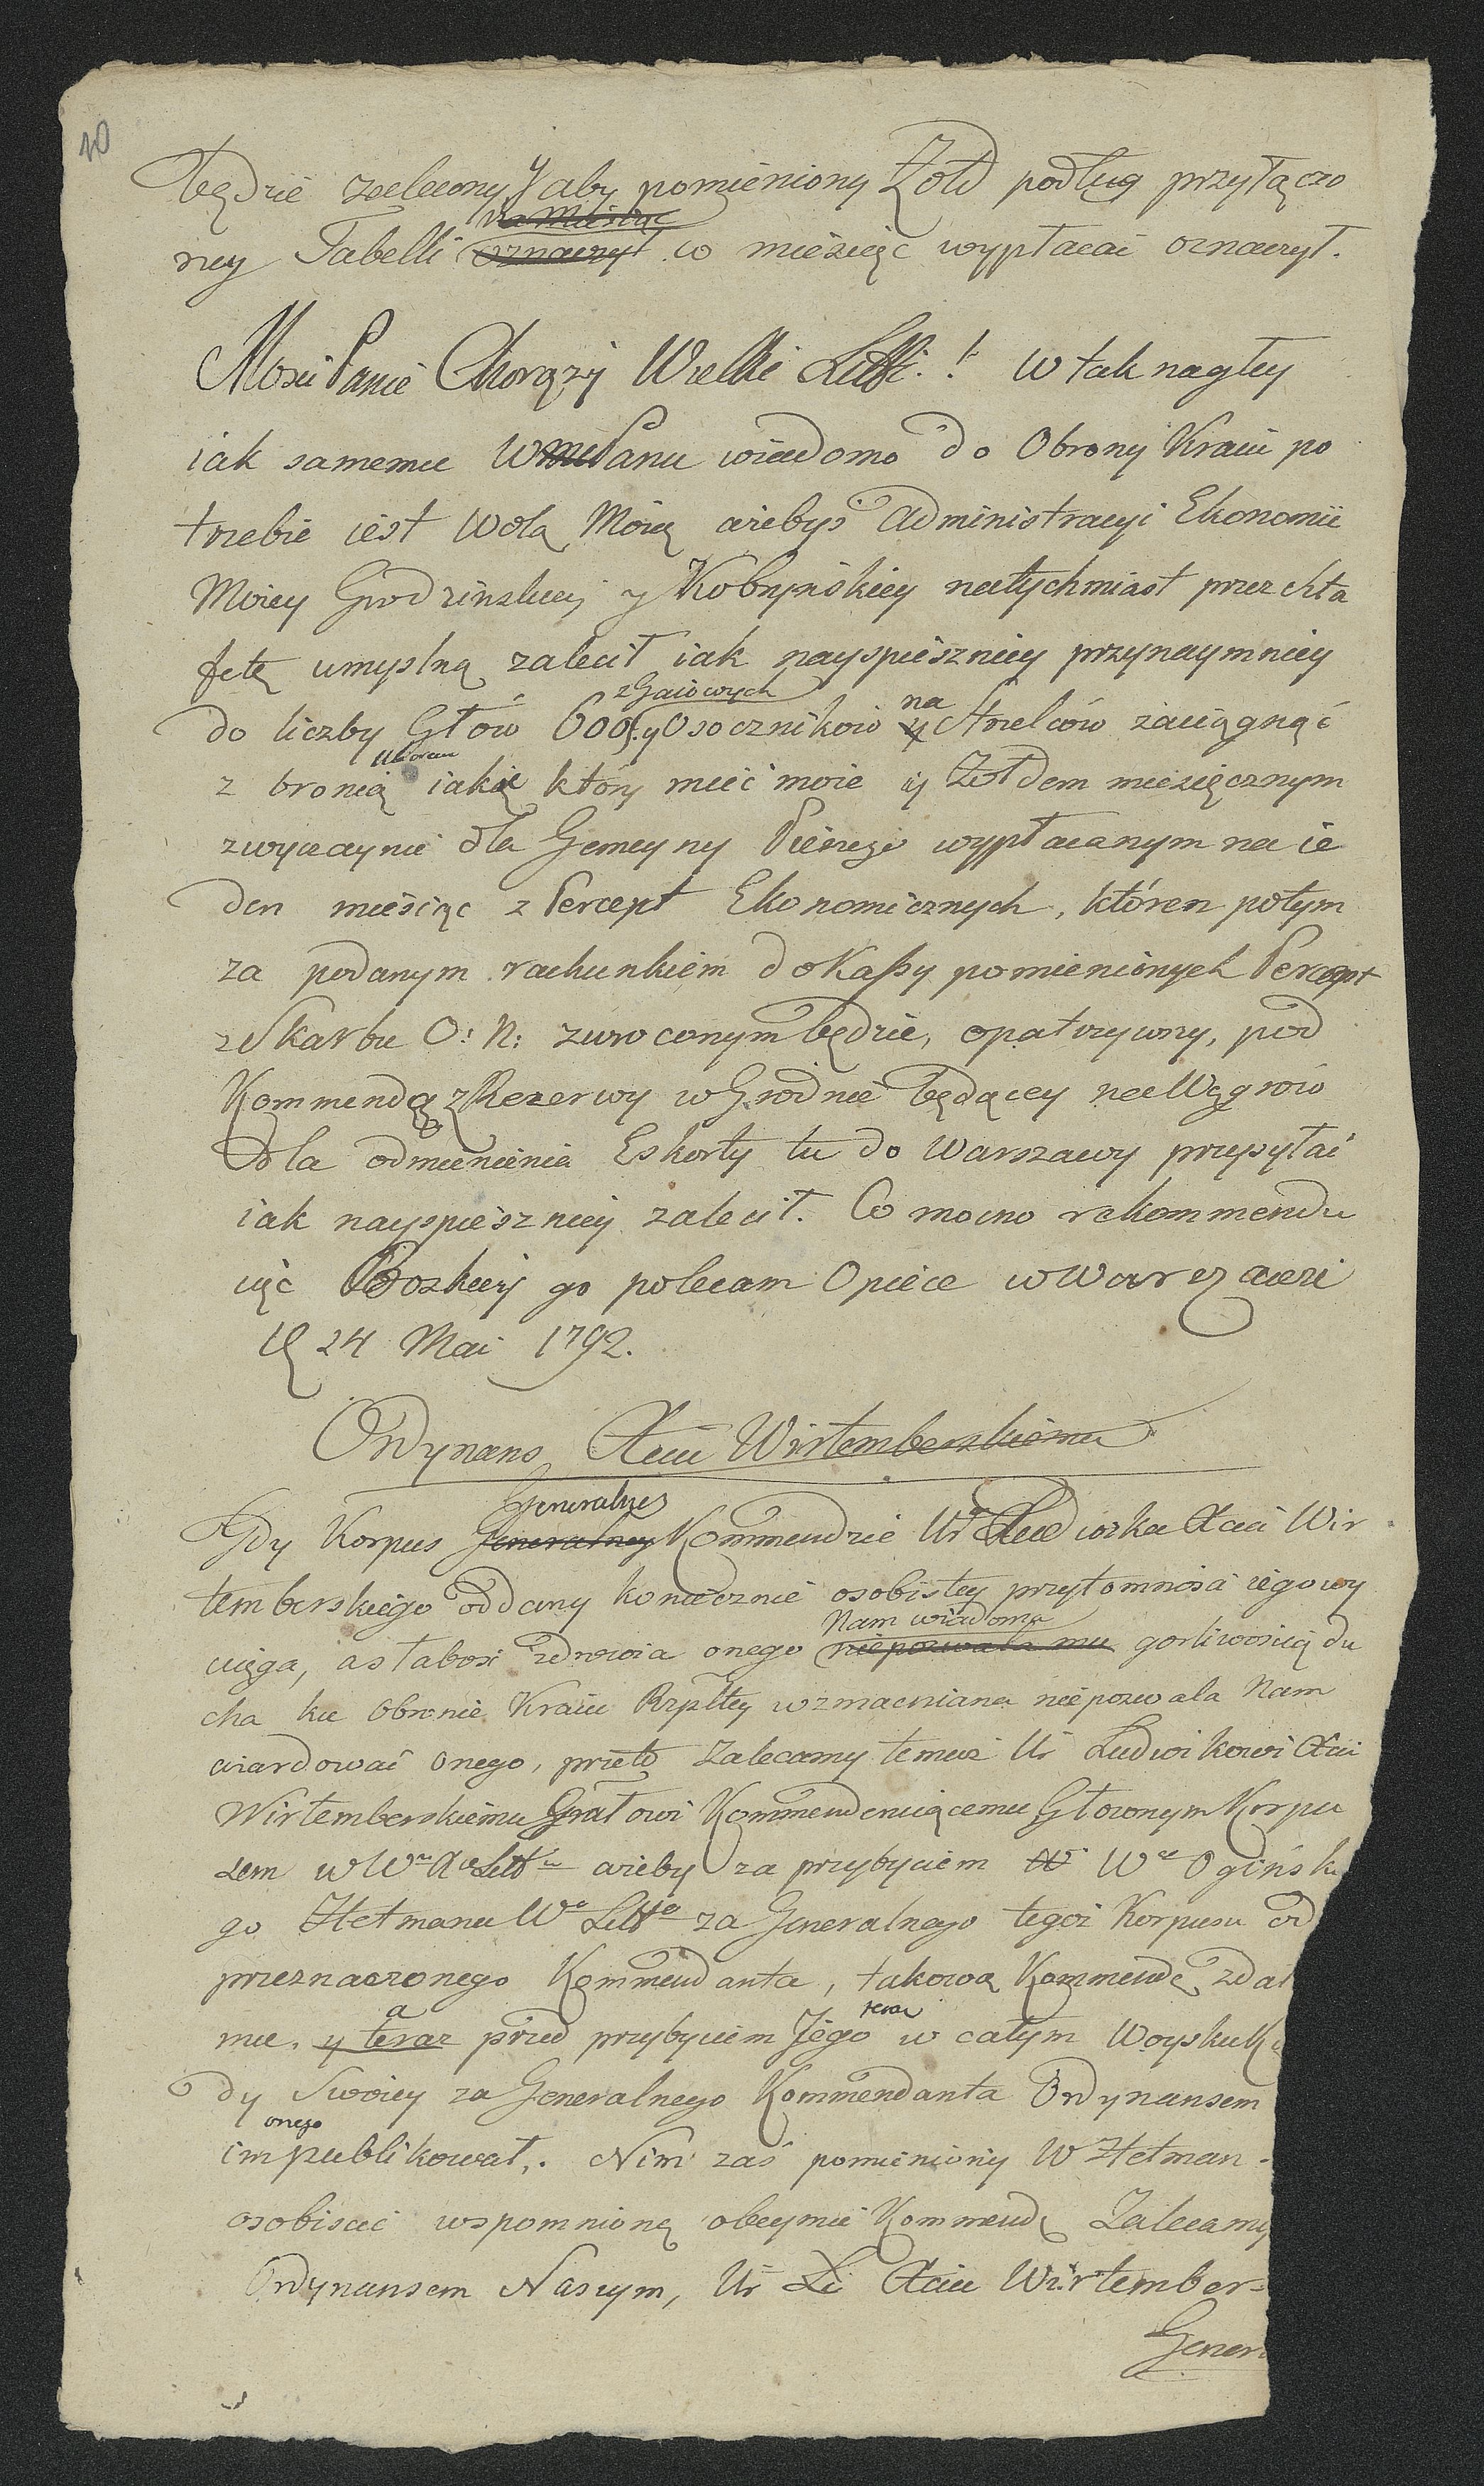 10
będzie zalecony y aby pomieniony Żołd podług przyłączo
na Miesiąc
ney Tabelli oznaczył co miesiąc wypłacać oznaczył.
Mosći Panie Chorąży Wielki Litti.! w tak nagłey
iak samemu WmPanu wiadomo do Obrony Kraiu po
trzebie iest Wola Moia ażebyś Administracyi Ekonomii
Moiey Grodzinskiey y Kobryńskiey natychmiast przez szta
fetę umyslną zalecił iak nayspieszniey przynaymniey
z Gaiowych na
do liczby Głów 600. y Osoczników y Strzelców zaciągnąć
Ubiorem
z bronią iaką który mieć może y Żołdem miesięcznym
zwyczaynie dla Gemeyny Pieszey wypłacanym na ie
den miesiąc z Percept Ekonomicznych, któren potym
za podanym rachunkiem do Kassy pomienionych Percept
z Skarbu O: N: zwroconym będzie, opatrzywszy, pod
Kommendą z Rezerwy w Grodnie będącey na Węgrów
dla odmienienia Eskorty tu do Warszawy przysyłać
iak nayspieszniey zalecił. Co mocno rekommendu
iąc Boskiey go polecam Opiece w Warszawie
D 24 Mai 1792.
Ordynans Xciu Wirtemberskiemu
Generalney
Gdy Korpus Generalney Kommendzie Ur Ludwika Xcia Wir
temberskiego oddany koniecznie osobistey przytomności iego wy
Nam wiadoma
ciąga, a słabość zdrowia onego niepozwala mu gorliwością du
cha ku Obronie Kraiu Rzpltey wzmacniana niepozwala Nam
azardować onego, przeto Zalecamy temuż Ur Ludwikowi Xciu
Wirtemberskiemu Grałowi Kommenderuiącemu Głownym Korpu
sem w Wm Xie Litt ażeby za przybyciem W Wo Ogińskie
go Hetmana Wo Litto za Generalnego tegoż Korpusu od
przeznaczonego Kommendanta, takową Kommendę zdał
a teraz
mu. y teraz przed przybyciem Jego w całym Woysku K
dy Swoiey za Generalnego Kommendanta Ordynansem
onego
im publikował. Nim zaś pomieniony W Hetman
osobiscie wspomnioną obeymie Kommendę Zalecamy
Ordynansem Naszym, Ur Li Xciu Wirtember-
Gener